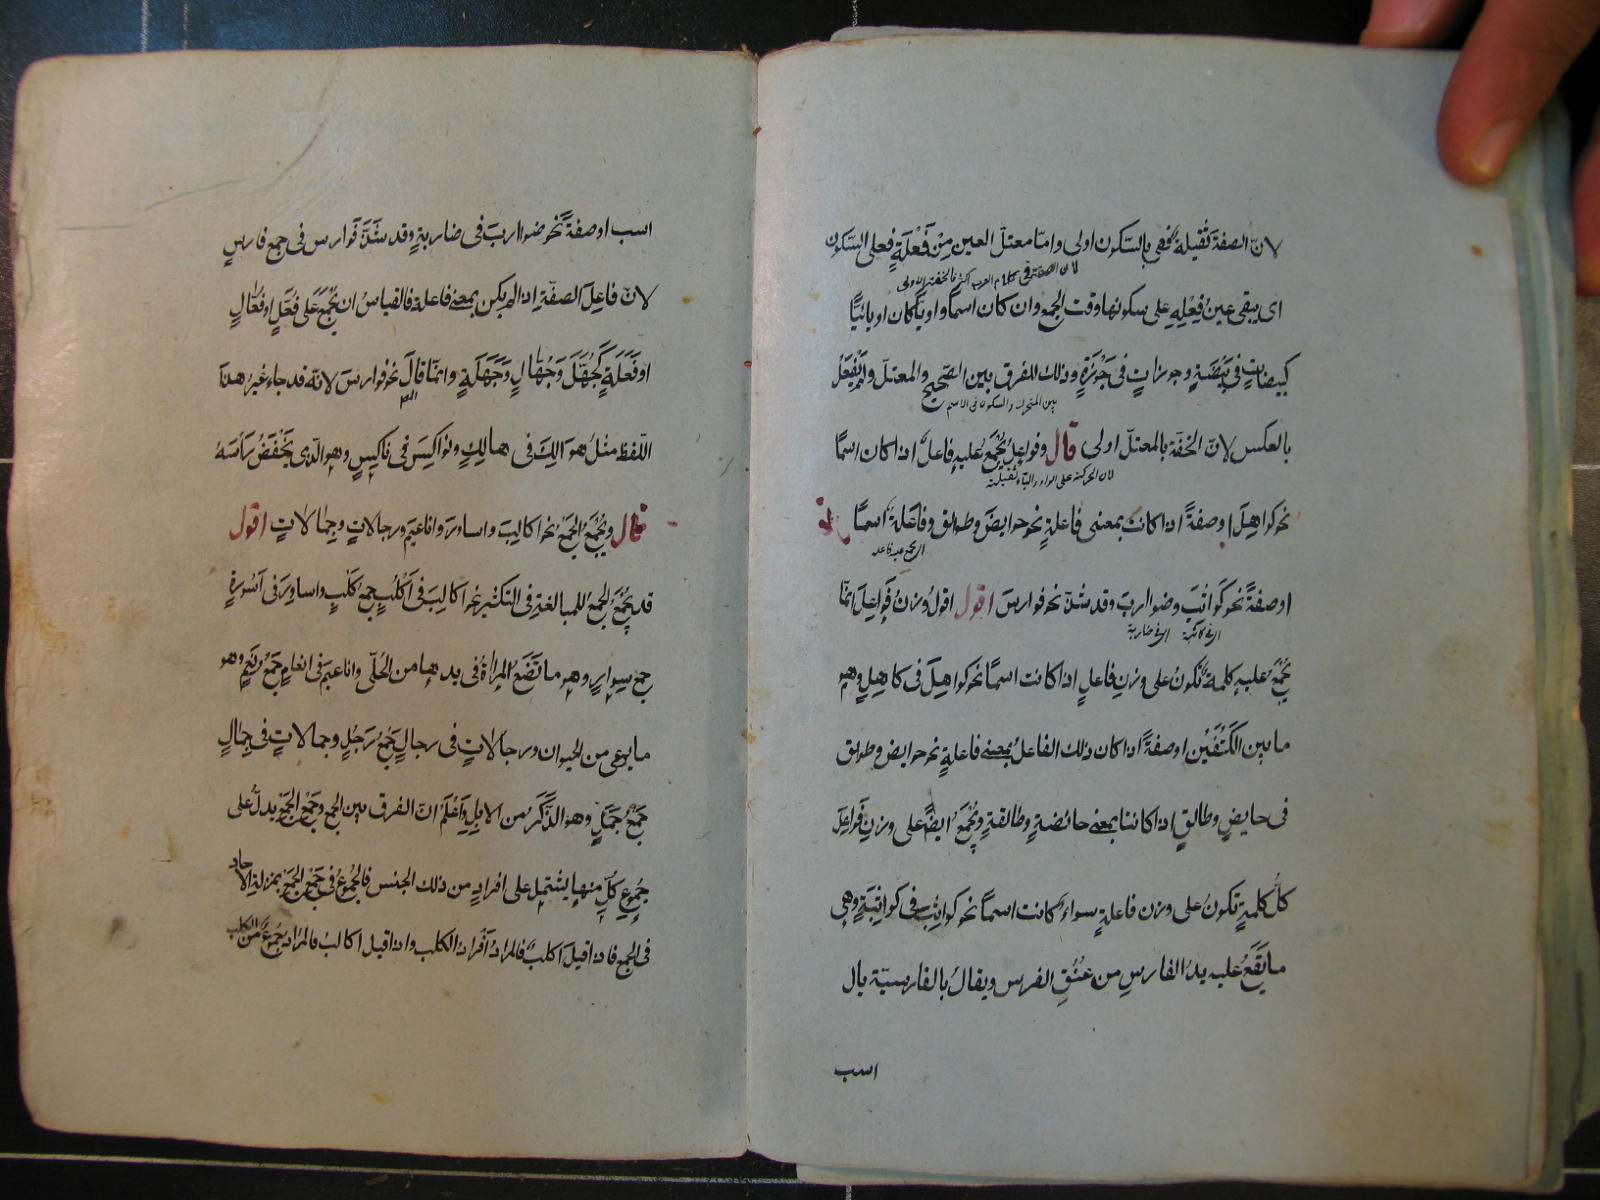 لانّ الصفة ثقيلة فهى بالسّكون اولى وامّا معتلّ العين مِنْ فَعْلَةٍ فعلى السّكون
لان الصفة فى كلام العرب اكثر فالخفة اولى
اى يبقى عينُ فِعْلِهِ على سكونها وقت الجمع وان كان اسمًا واويًّا كان او يائيًّا
كبيضاتٍ فى بَيْضَةٍ وجوزاتٍ فى جَوْزَةٍ وذلك للفرق بين الصّحيح والمعتلّ ولم يُفْعَلْ
بين المتحرك والسكون فى الاسم
بالعكس لانّ الخفّة بالمعتلّ اولى قال وفواعِلُ يُجْمَعُ عليه فاعلٌ اذا كان اسمًا
لان الحركة على الواو والياء ثقيلة
نحو كواهِلَ او صفةً اذا كانت بمعنى فاعلةٍ نحو حوايضَ وطوالق وفاعلة اسمًا
اى يجمع عليه فاعلة
او صفةً نحو كَواثبَ وضواربَ وقد شذّ نحو فوارسَ اقول اقولُ وزنُ فَواعِلَ انّما
اى فى كاثبة اى فى ضاربة
يُجْمَعُ عليه كلمةٌ تكونُ على وزنِ فاعلٍ اذا كانت اسمًا نحو كواهلَ فى كاهلٍ وهو
ما بين الكَتِفَيْنِ او صفةً اذا كان ذلك الفاعلُ بمعنى فاعلةٍ نحو حوايض وطوالق
فى حايضٍ وطالقٍ اذا كانتا بمعنى حائضةٍ وطالقةٍ ويُجْمَعُ ايضًا على وزنِ فَواعِلَ
كلُّ كلمةٍ تكونُ على وزن فاعلةٍ سواءٌ كانت اسمًا نحو كواثب فى كواثبةٍ وهى
ما يَقَعُ عليه يدُ الفارسِ من عُنُقِ الفرس ويقالُ بالفارسيّة يال
اسب
اسب او صفةً نحو ضواربَ فى ضاربةٍ وقد شَذَّ فَوارس فى جمع فارسٍ
لانّ فاعلَ الصفّةِ اذا لم يكن بمعنى فاعلة فالقياسُ ان يُجْمَعَ على فُعَّلٍ او فُعّالٍ
او فَعَلَةٍ كَجُهَّلٍ وَجُهّالٍ وَجَهَلَةٍ وانّما قالَ نحو فوارسَ لانّه قد جاء غيرُ هذا
اللّفظ مثلُ هوالِكَ فى هالِكٍ ونواكِسَ فى ناكسٍ وهو الّذى يَخْفَضُ رَأسَهُ
قال ويُجْمَعُ الجمعُ نحو اكاليبَ واساورَ واناعيمَ ورجالاتٍ وجِمالاتٍ اقول
قد يُجْمَعُ الجمعُ للمبالغةِ فى التكثيرِ نحو اكالبَ فى اَكْلُبٍ جمعِ كلْبٍ واساورَ فى اَسْوِرةٍ
جمع سِوارٍ وهو ما تَضَعُ المرأةُ فى يدها من الحُلّى واناعيمَ فى انعامٍ جَمْعُ نَعَمٍ وهو
ما يرعى من الحيوان ورجالاتٍ فى رجالٍ جَمْعُ رَجُلٍ وجمالاتٍ فى جِمالٍ
جَمْعُ جَمَلٍ وهو الذَّكَرُ من الابِلِ وَاعْلَمْ انّ الفرق بين الجمع وجَمْعِ الجَمْعِ يدلُّ على
جُمُوعٍ كلٌّ منها يشتمل على افرادٍ من ذلك الجنس فالجُمُوعُ فى جَمْعِ الجَمْعِ بمنزلةِ الآحاد
فى الجمع فاذا قيلَ اكلبٌ فالمرادُ اَفْرادُ الكلب واذا قيل اكالبُ فالمراد جُمُوعٌ من الكلب